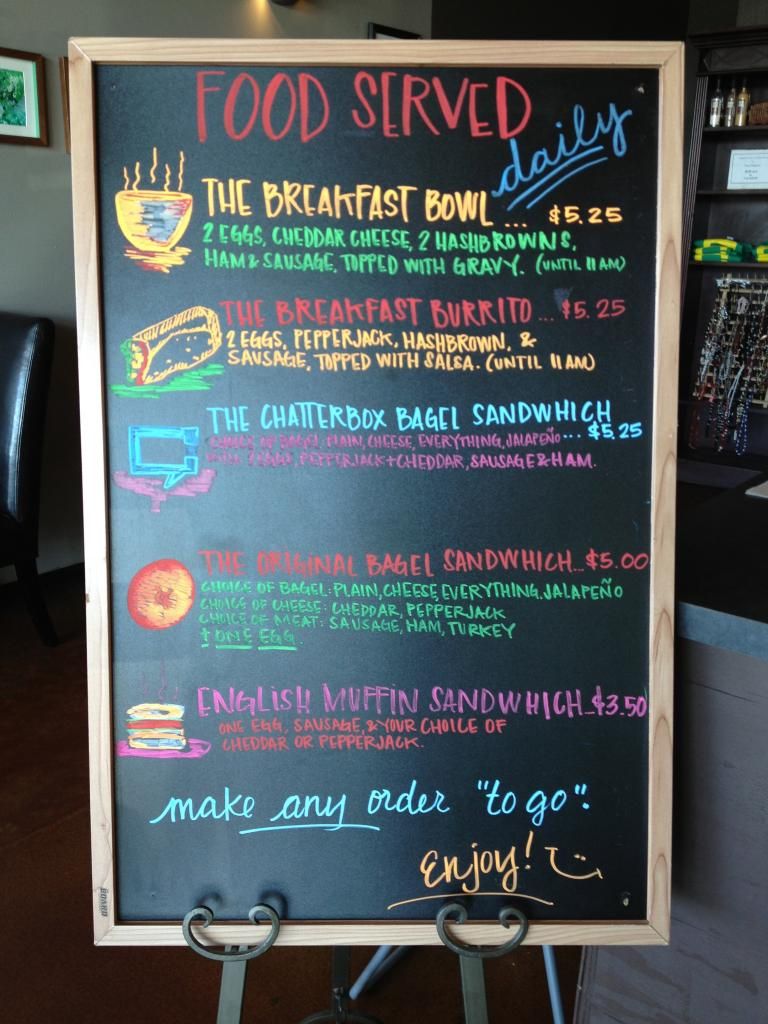 FOOD SERVED
daily
THE BREAKFAST BOWL ... $5.25
2 EGGS, CHEDDAR CHEESE, 2 HASHBROWNS,
HAM & SAUSAGE, TOPPED WITH GRAVY. (UNTIL 11 AM)
THE BREAKFAST BURRITO ... $5.25
2 EGGS, PEPPERJACK, HASHBROWN, &
SAUSAGE, TOPPED WITH SALSA. (UNTIL 11 AM)
THE CHATTERBOX BAGEL SANDWHICH
CHOICE OF BAGEL: PLAIN, CHEESE, EVERYTHING, JALAPEÑO... $5.25
WITH 2 EGGS, PEPPERJACK + CHEDDAR, SAUSAGE & HAM.
THE ORIGINAL BAGEL SANDWHICH...$5.00
CHOICE OF BAGEL: PLAIN, CHEESE, EVERYTHING, JALAPEÑO
CHOICE OF CHEESE: CHEDDAR, PEPPERJACK
CHOICE OF MEAT: SAUSAGE, HAM, TURKEY
+ ONE EGG.
ENGLISH MUFFIN SANDWHICH...$3.50
ONE EGG, SAUSAGE, & YOUR CHOICE OF
CHEDDAR OR PEPPERJACK.
make any order "to go".
Enjoy!